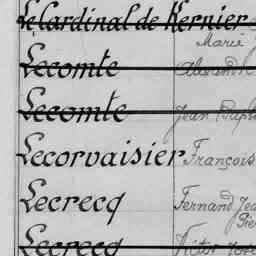 Le Cardinal de Kernier
Marie
Lecomte
Lecomte Jean
Lecorvaisier François
Lecrecq Fernand
Lecrecq Victor